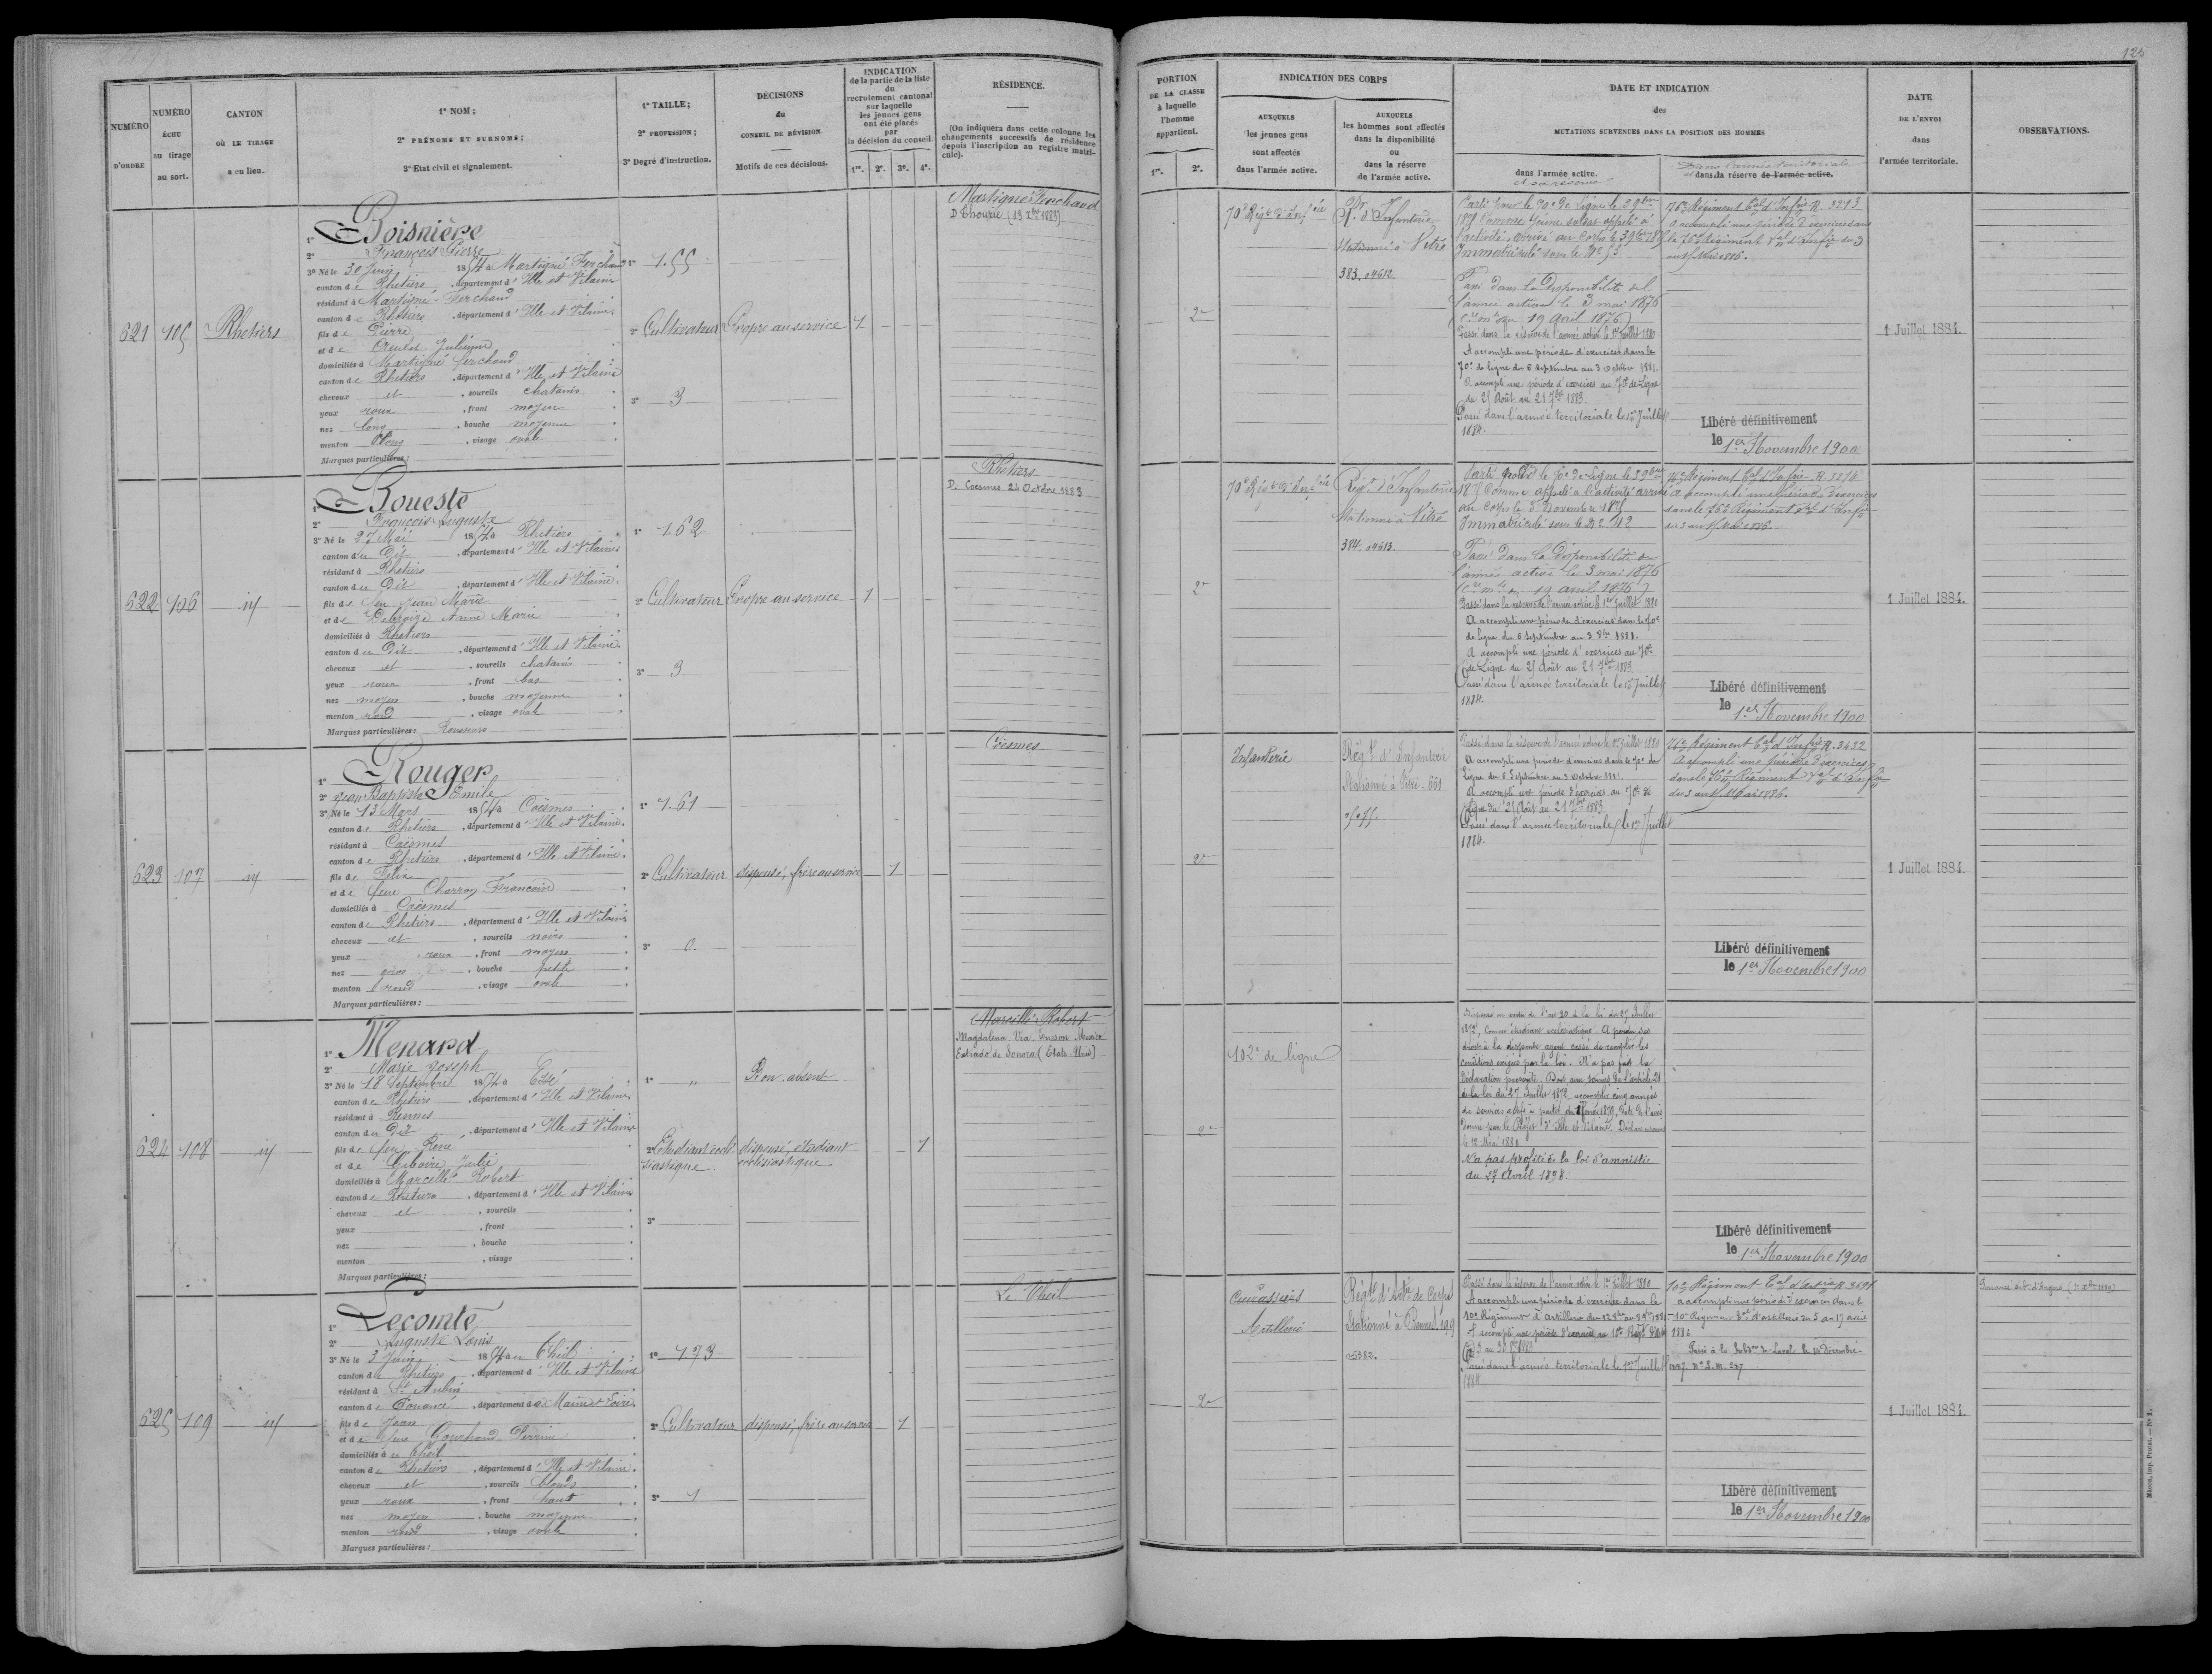 125
NUMÉRO
D'ORDRE
NUMÉRO
ÉCHU
au tirage
au sort.
CANTON
OÙ LE TIRAGE
a eu lieu.
1º NOM;
2º PRÉNOMS ET SURNOMS;
3º Etat civil et signalement.
1º TAILLE;
2º PROFESSION;
3º Degré d'instruction.
DÉCISIONS
du
CONSEIL DE RÉVISION
Motifs de ces décisions.
INDICATION
de la partie de la liste
du
recrutement cantonal
sur laquelle
les jeunes gens
ont été placés
par
la décision du conseil.
1re. 2e. 3e. 4e.
RÉSIDENCE.
(On indiquera dans cette colonne les
changements successifs de résidence
depuis l'inscription au registre matri-
cule).
PORTION
DE LA CLASSE
à laquelle
l'homme
appartient.
1re. 2e.
INDICATION DES CORPS
AUXQUELS
les jeunes gens
sont affectés
dans l'armée active.
AUXQUELS
les hommes sont affectés
dans la disponibilité
ou
dans la réserve
de l'armée active.
DATE ET INDICATION
des
MUTATIONS SURVENUES DANS LA POSITION DES HOMMES
dans l'armée active.
et sa réserve
Dans l'armée territoriale
et dans la réserve de l'armée active.
DATE
DE L'ENVOI
dans
l'armée territoriale.
OBSERVATIONS.
621 105 Rhetiers
1º Boisnière
2º François Pierre
3º Né le 30 Juin 1854 à Martigné Ferchaud
canton de Rhetiers, département d'Ille et Vilaine
résidant à Martigné-Ferchaud
canton de Rhetiers, département d'Ille et Vilaine
fils de Pierre
et de Julienne
domiciliés à Martigné ferchaud
canton de Rhetiers, département d'Ille et Vilaine
cheveux et, sourcils chatains
yeux roux, front moyen
nez long, bouche moyenne
menton long, visage ovale
Marques particulières:
1º 1.55
2º Cultivateur
3º 3
Propre au service
1
Martigné Ferchaud
D. Thourie (13 Xbre 1883)
2e
70e Régt d'Infie
Rt d'Infanterie
Stationné à Vitré
383. 04612.
Parti pour le 70e de ligne le 3 9bre
1875 Comme jeune soldat appelé à
l'activité, arrivé au Corps le 3 9bre 1875
Immatriculé sous le No 53
Passé dans la Disponibilité de
l'armée active le 3 mai 1876
(Cre mlle du 19 avril 1876)
Passé dans la réserve de l'armée active le 1er juillet 1880
A accompli une période d'exercices dans le
70e de ligne du 6 septembre au 3 octobre 1881.
A accompli une période d'exercices au 70e de Ligne
du 25 Août au 21 7bre 1883.
Passé dans l'armée territoriale le 1er Juillet
1884.
76e Régiment Tal d'Infie R. 3273
A accompli une période d'exercices dans
le 76e Régiment Tal d'Infie du 3
au 15 Mai 1886.
Libéré définitivement
le 1er Novembre 1900
1 Juillet 1884.
622 106 id
1º Boueste
2º François Auguste
3º Né le 27 Mai 1854 à Rhetiers
canton du Dit, département d'Ille et Vilaine
résidant à Rhetiers
canton du Dit, département d'Ille et Vilaine
fils de feu Jean Marie
et de Debroize Anne Marie
domiciliés à Rhetiers
canton du Dit, département d'Ille et Vilaine
cheveux et, sourcils chatains
yeux roux, front bas
nez moyen, bouche moyenne
menton rond, visage ovale
Marques particulières: Rousseurs
1º 1.62
2º Cultivateur
3º 3
Propre au service
1
Rhetiers
D. Coesmes 24 Octobre 1883
2e
70e Régt d'Infie
Régt d'Infanterie
Stationné à Vitré
384. 04613.
Parti pour le 70e de Ligne le 3 9bre
1875 Comme appelé à l'activité arrivé
au Corps le 3 Novembre 1875
Immatriculé sous le No 2412
Passé dans la Disponibilité de
l'armée active le 3 mai 1876
(Cre mlle du 19 avril 1876)
Passé dans la réserve de l'armée active le 1er Juillet 1880
A accompli une période d'exercices dans le 70e
de ligne du 6 Septembre au 3 8bre 1881.
A accompli une période d'exercices au 70e
de Ligne du 25 Août au 21 7bre 1883
Passé dans l'armée territoriale le 1er Juillet
1884.
76e Régiment Tal d'Infie R. 3274
A accompli une période d'exercices
dans le 76e Régiment Tal d'Infie
du 3 au 15 Mai 1886.
Libéré définitivement
le 1er Novembre 1900
1 Juillet 1884.
623 107 id
1º Rouger
2º Jean Baptiste Emile
3º Né le 13 Mars 1854 à Coësmes
canton de Rhetiers, département d'Ille et Vilaine
résidant à Coësmes
canton de Rhetiers, département d'Ille et Vilaine
fils de Felix
et de feue Charron Françoise
domiciliés à Coësmes
canton de Rhetiers, département d'Ille et Vilaine
cheveux et, sourcils noirs
yeux roux, front moyen
nez gros, bouche petite
menton rond, visage ovale
Marques particulières:
1º 1.61
2º Cultivateur
3º 0
dispensé, frère au service
1
Coësmes
2e
Infanterie
Régt d'Infanterie
Stationné à Vitré. 661
Passé dans la réserve de l'armée active le 1er juillet 1880
A accompli une période d'exercices dans le 70e de
Ligne du 6 Septembre au 3 Octobre 1881.
A accompli une période d'exercices au 70e de
Ligne du 25 Août au 21 7bre 1883
Passé dans l'armée territoriale le 1er Juillet
1884.
76e Régiment Tal d'Infie R. 3432
A accompli une période d'exercices
dans le 76e Régiment Tal d'Infie
du 3 au 15 Mai 1886.
Libéré définitivement
le 1er Novembre 1900
1 Juillet 1884.
624 108 id
1º Menard
2º Marie Joseph
3º Né le 18 Septembre 1854 à Essé
canton de Rhetiers, département d'Ille et Vilaine
résidant à Rennes
canton du Dit, département d'Ille et Vilaine
fils de feu René
et de Giboire Julie
domiciliés à Marcillé Robert
canton de Rhetiers, département d'Ille et Vilaine
cheveux et, sourcils
yeux, front
nez, bouche
menton, visage
Marques particulières:
1º "
2º Etudiant ecclé-
siastique.
3º
Bon. absent
dispensé, étudiant
ecclésiastique
1
Marcillé-Robert
Magdalena Via Tucson Mexico
Estrado de Sonora (Etats-Unis)
2e
102e de ligne
Dispensé en vertu de l'art. 20 de la loi du 27 Juillet
1872 Comme étudiant ecclésiastique. A perdu ses
droits à la dispense ayant cessé de remplir les
conditions exigées par la loi. N'a pas fait la
Déclaration prescrite. Doit aux termes de l'article 21
de la loi du 27 Juillet 1872 accomplir cinq années
de service actif à partir du date de l'avis
donné par le Préfet d'Ille et Vilaine. Déclaré insoumis
le 12 Mai 1880
N'a pas profité de la loi d'amnistie
du 27 Avril 1898.
Libéré définitivement
le 1er Novembre 1900
625 109 id
1º Lecomte
2º Auguste Louis
3º Né le 3 Juin 1854 au Theil
canton de Rhetiers, département d'Ille et Vilaine
résidant à St Aubin
canton de Pouancé, département de Maine et Loire
fils de Jean
et de feue Gourhand Perrine
domiciliés au Theil
canton de Rhetiers, département d'Ille et Vilaine
cheveux et, sourcils blonds
yeux roux, front haut
nez moyen, bouche moyenne
menton rond, visage ovale
Marques particulières:
1º 1.73
2º Cultivateur
3º 1
dispensé, frère au service
1
Le Theil
2e
Cuirassiers
Artillerie
Régt d'Artie de Corps
Stationné à Rennes. 199
05382.
Passé dans la réserve de l'armée active le 1er Juillet 1880
A accompli une période d'exercices dans le
10e Régiment d'Artillerie du
A accompli une période d'exercices au 10e Régt d'Artie
Passé dans l'armée territoriale le 1er Juillet
1884
10e Régiment Tal d'Artie R. 3691
a accompli une période d'exercices dans le
10e Régiment Tal d'artillerie du 5 au 17 avril
1886
Passé à la Subdon de Laval le 14 Décembre
1887. No L. M. 287
Libéré définitivement
le 1er Novembre 1900
1 Juillet 1884.
Mâcon, imp. Protat. — Nº 1.